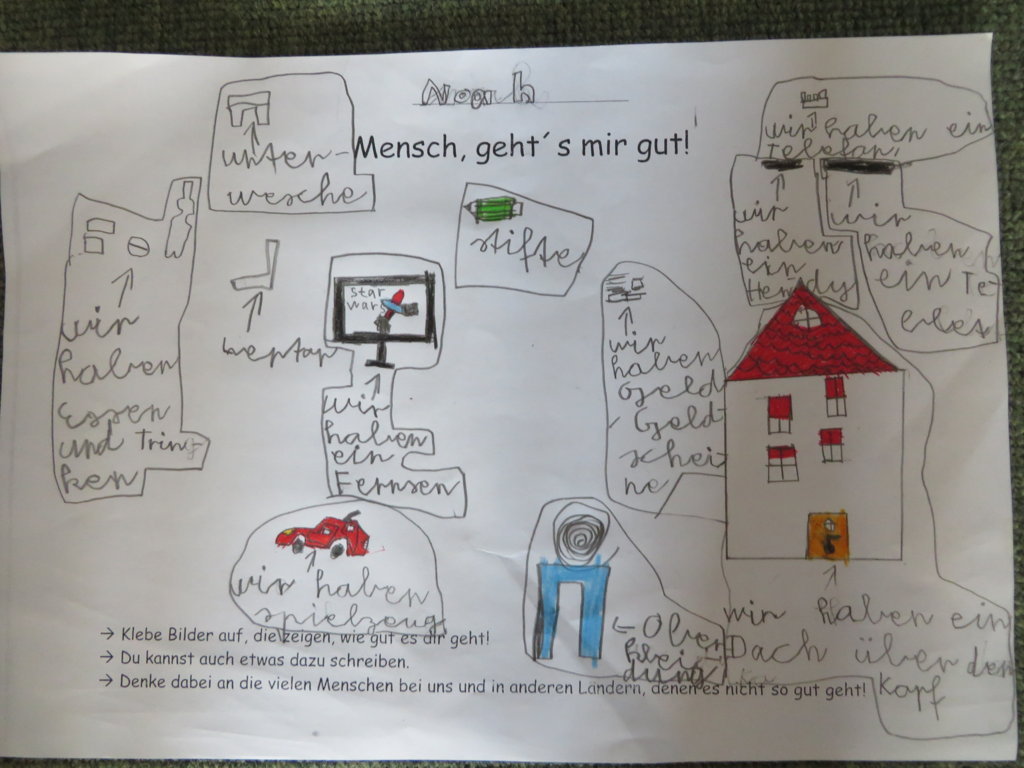 Noah
Mensch, geht´s mir gut!
unter-
wesche
stifte
wir haben ein
Telefon
wir
haben
ein
Hendy
wir
haben
ein Te-
wir
haben
Essen
und Tring
ken
star
wars
wir
haben
ein
Fernsen
wir
haben
Geld
Geld-
schei
ne
wir haben
spielzeug
← Ober
klei-
dung
wir haben ein
Dach über den
Kopf
→ Klebe Bilder auf, die zeigen, wie gut es dir geht!
→ Du kannst auch etwas dazu schreiben.
→ Denke dabei an die vielen Menschen bei uns und in anderen Ländern, denen es nicht so gut geht!